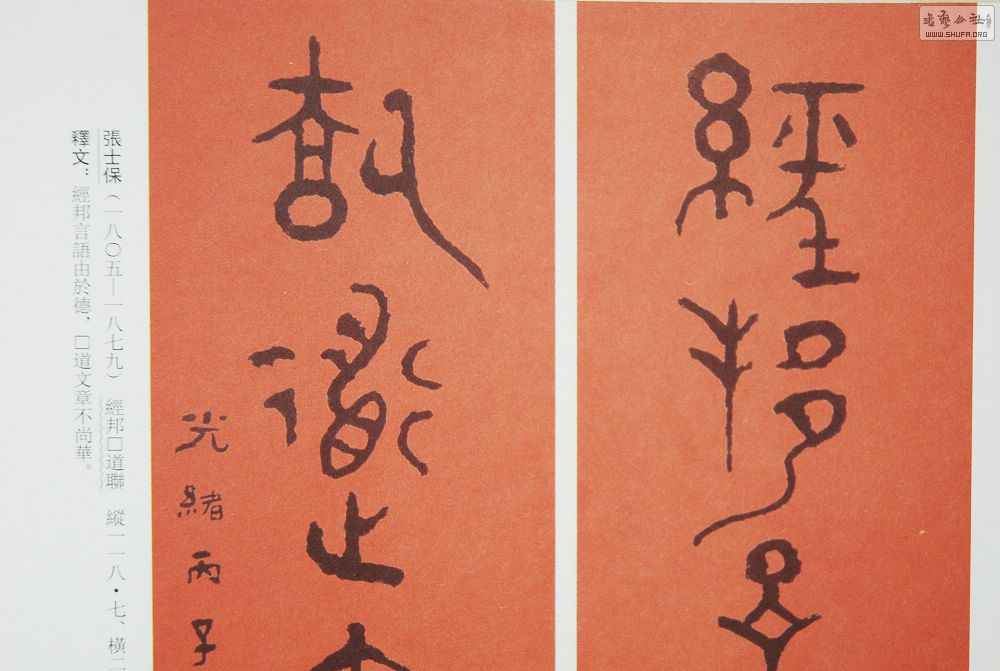 經邦
光緒丙子
張士保（一八〇五—一八七九） 經邦□道聯 縱一一八·七、橫二
釋文：經邦言語由於德，□道文章不尚華。
WWW.SHUFA.ORG